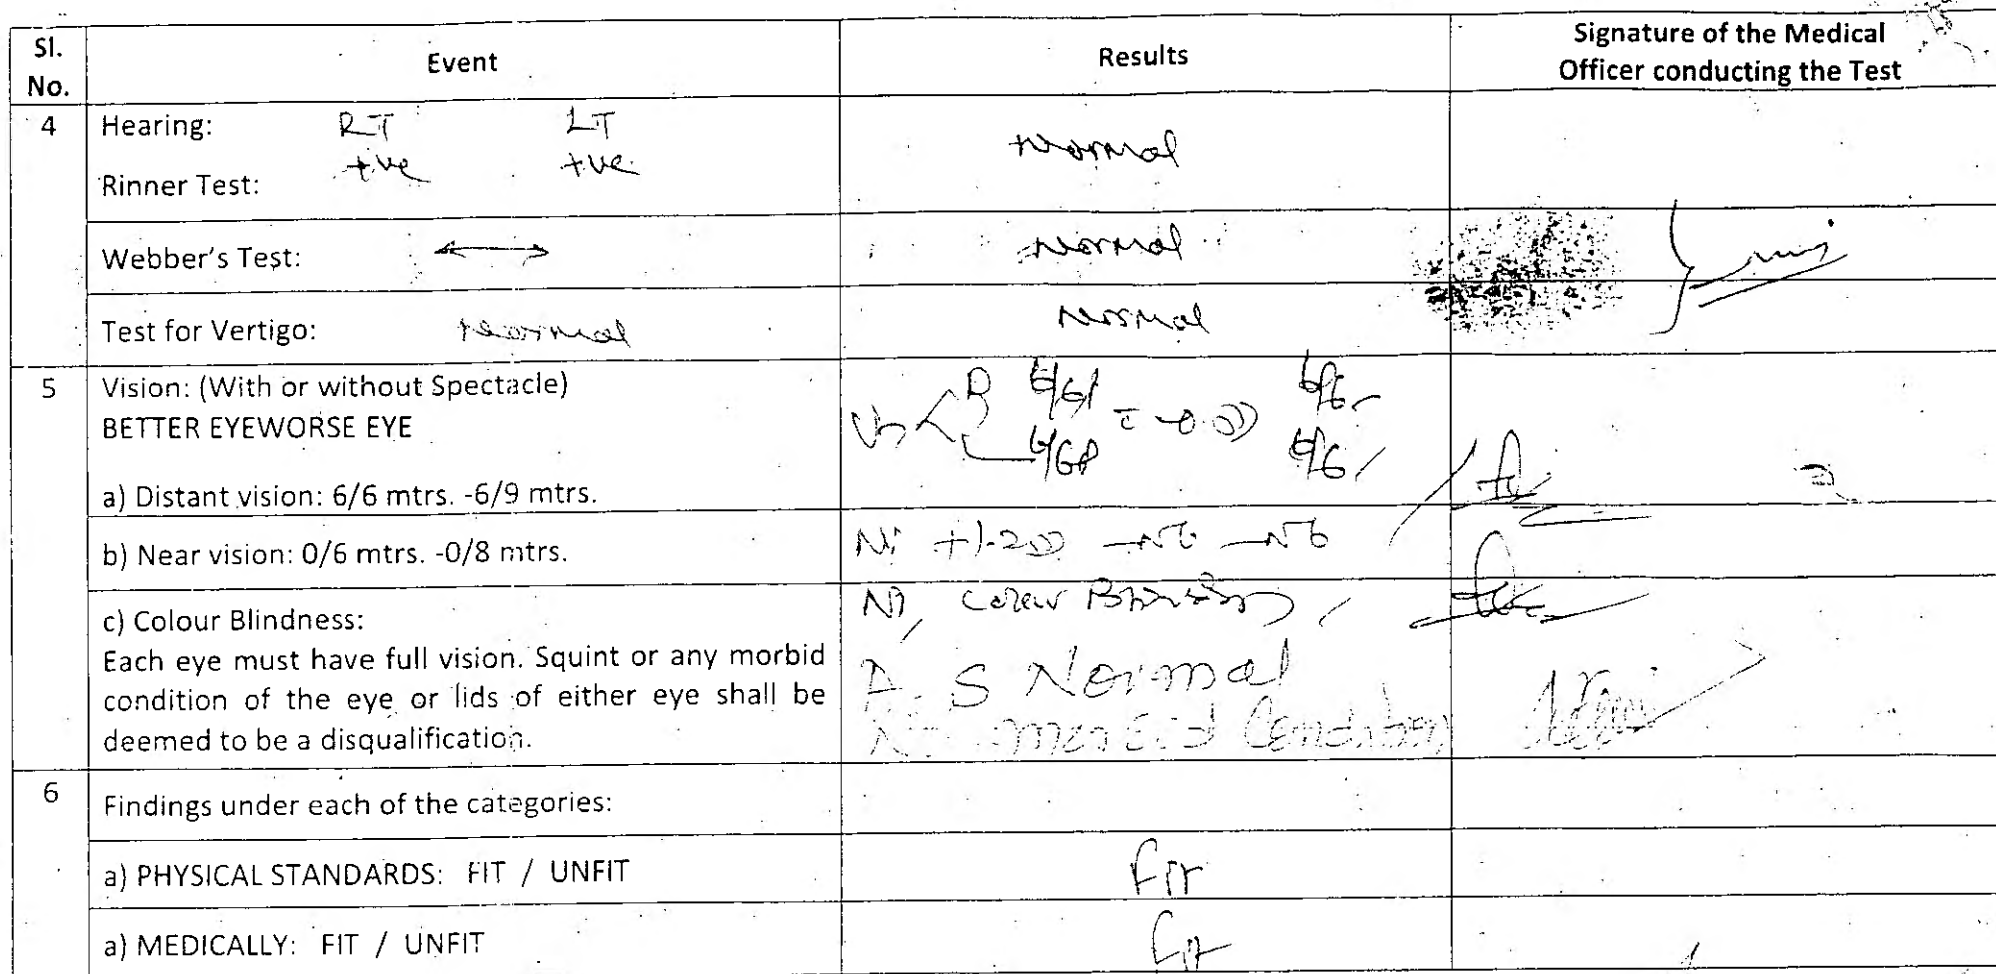 Sl. No. Event Results Signature of the Medical Officer conducting the Test
4 Hearing: RT LT
Rinner Test: +ve +ve Normal
Webber's Test: ←→ Normal
Test for Vertigo: Normal Normal
5 Vision: (With or without Spectacle)
BETTER EYEWORSE EYE
a) Distant vision: 6/6 mtrs. -6/9 mtrs. 6/6 6/6
b) Near vision: 0/6 mtrs. -0/8 mtrs. N6 N6
c) Colour Blindness:
Each eye must have full vision. Squint or any morbid
condition of the eye or lids of either eye shall be
deemed to be a disqualification.
A. S Normal
Condition
6 Findings under each of the categories:
a) PHYSICAL STANDARDS: FIT / UNFIT Fit
a) MEDICALLY: FIT / UNFIT Fit